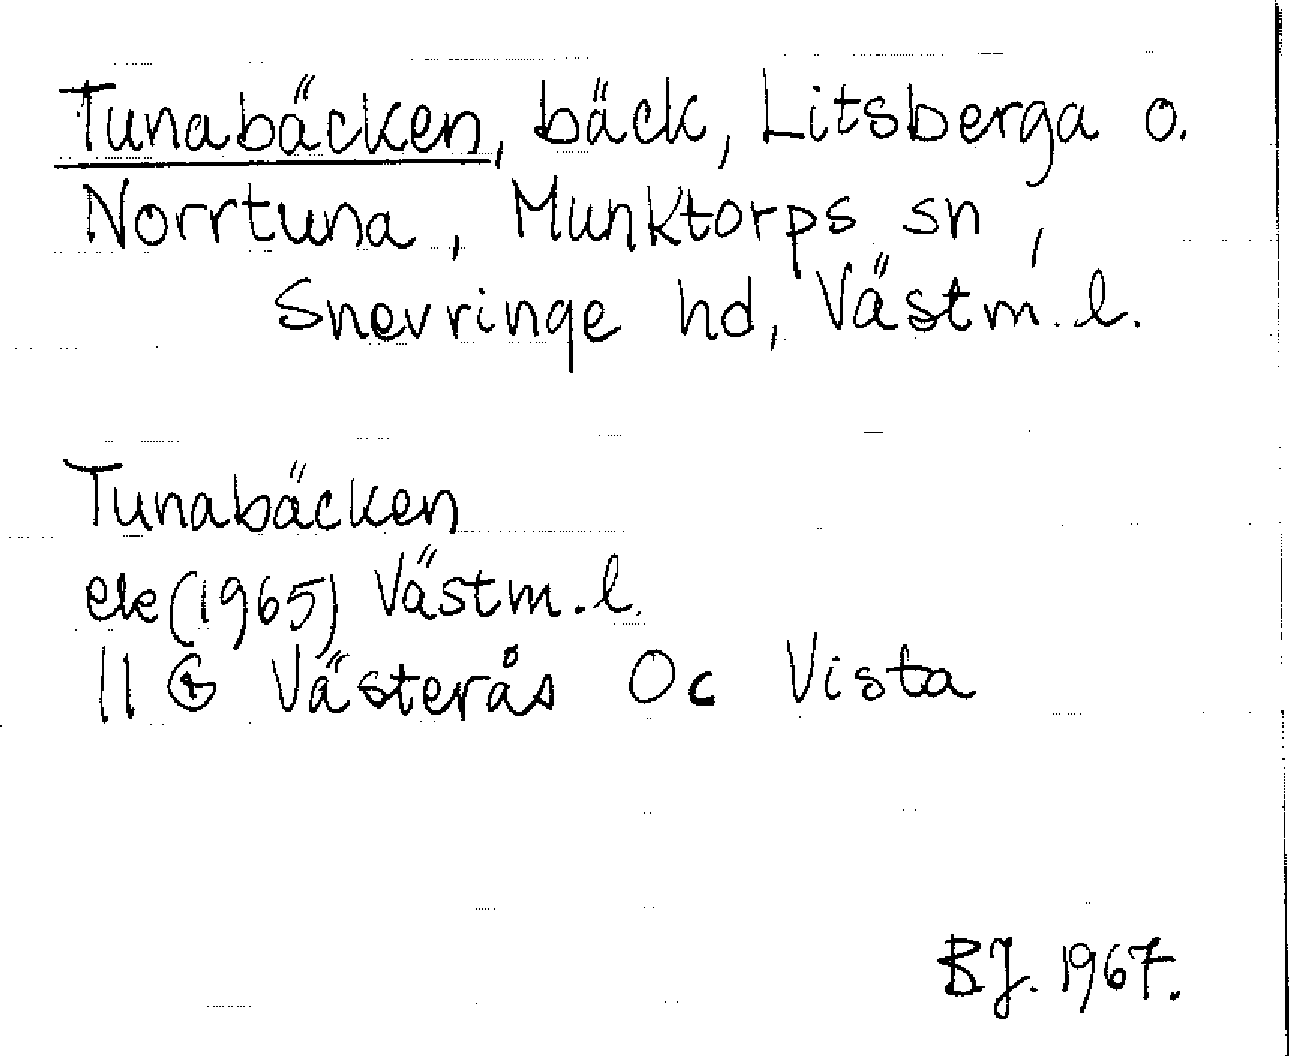 Tunabäcken, bäck, Litsberga o.
Norrtuna, Munktorps sn,
Snevringe hd, Västm. l.
Tunabäcken
ek (1965) Västm. l.
11 G Västerås Oc Vista
BJ. 1967.